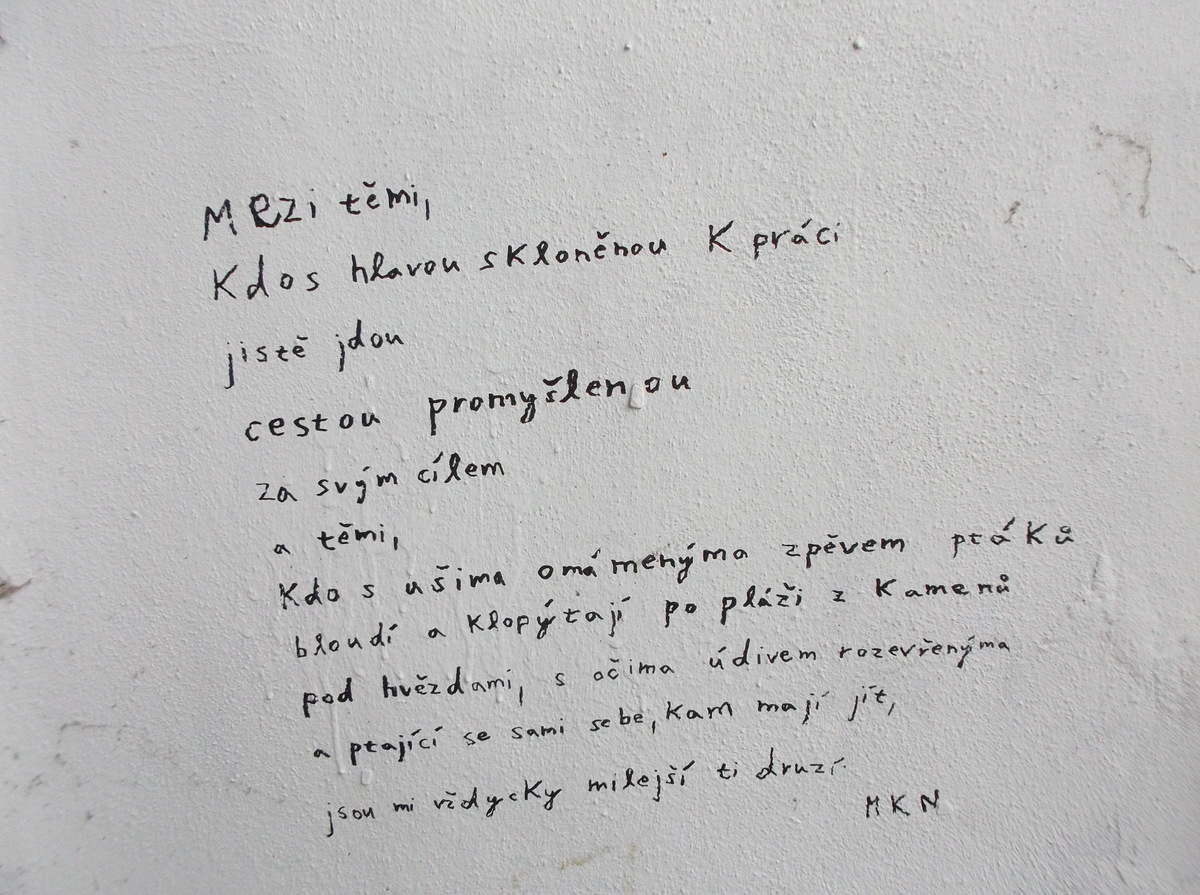 Mezi těmi,
Kdo s hlavou skloněnou K práci
jistě jdou
cestou promyšlenou
za svým cílem
a těmi,
Kdo s ušima omámenýma zpěvem ptáKů
bloudí a Klopýtají po pláži z Kamenů
pod hvězdami, s očima údivem rozevřenýma
a ptající se sami sebe, Kam mají jít,
jsou mi vždycKy milejší ti druzí.
MKN